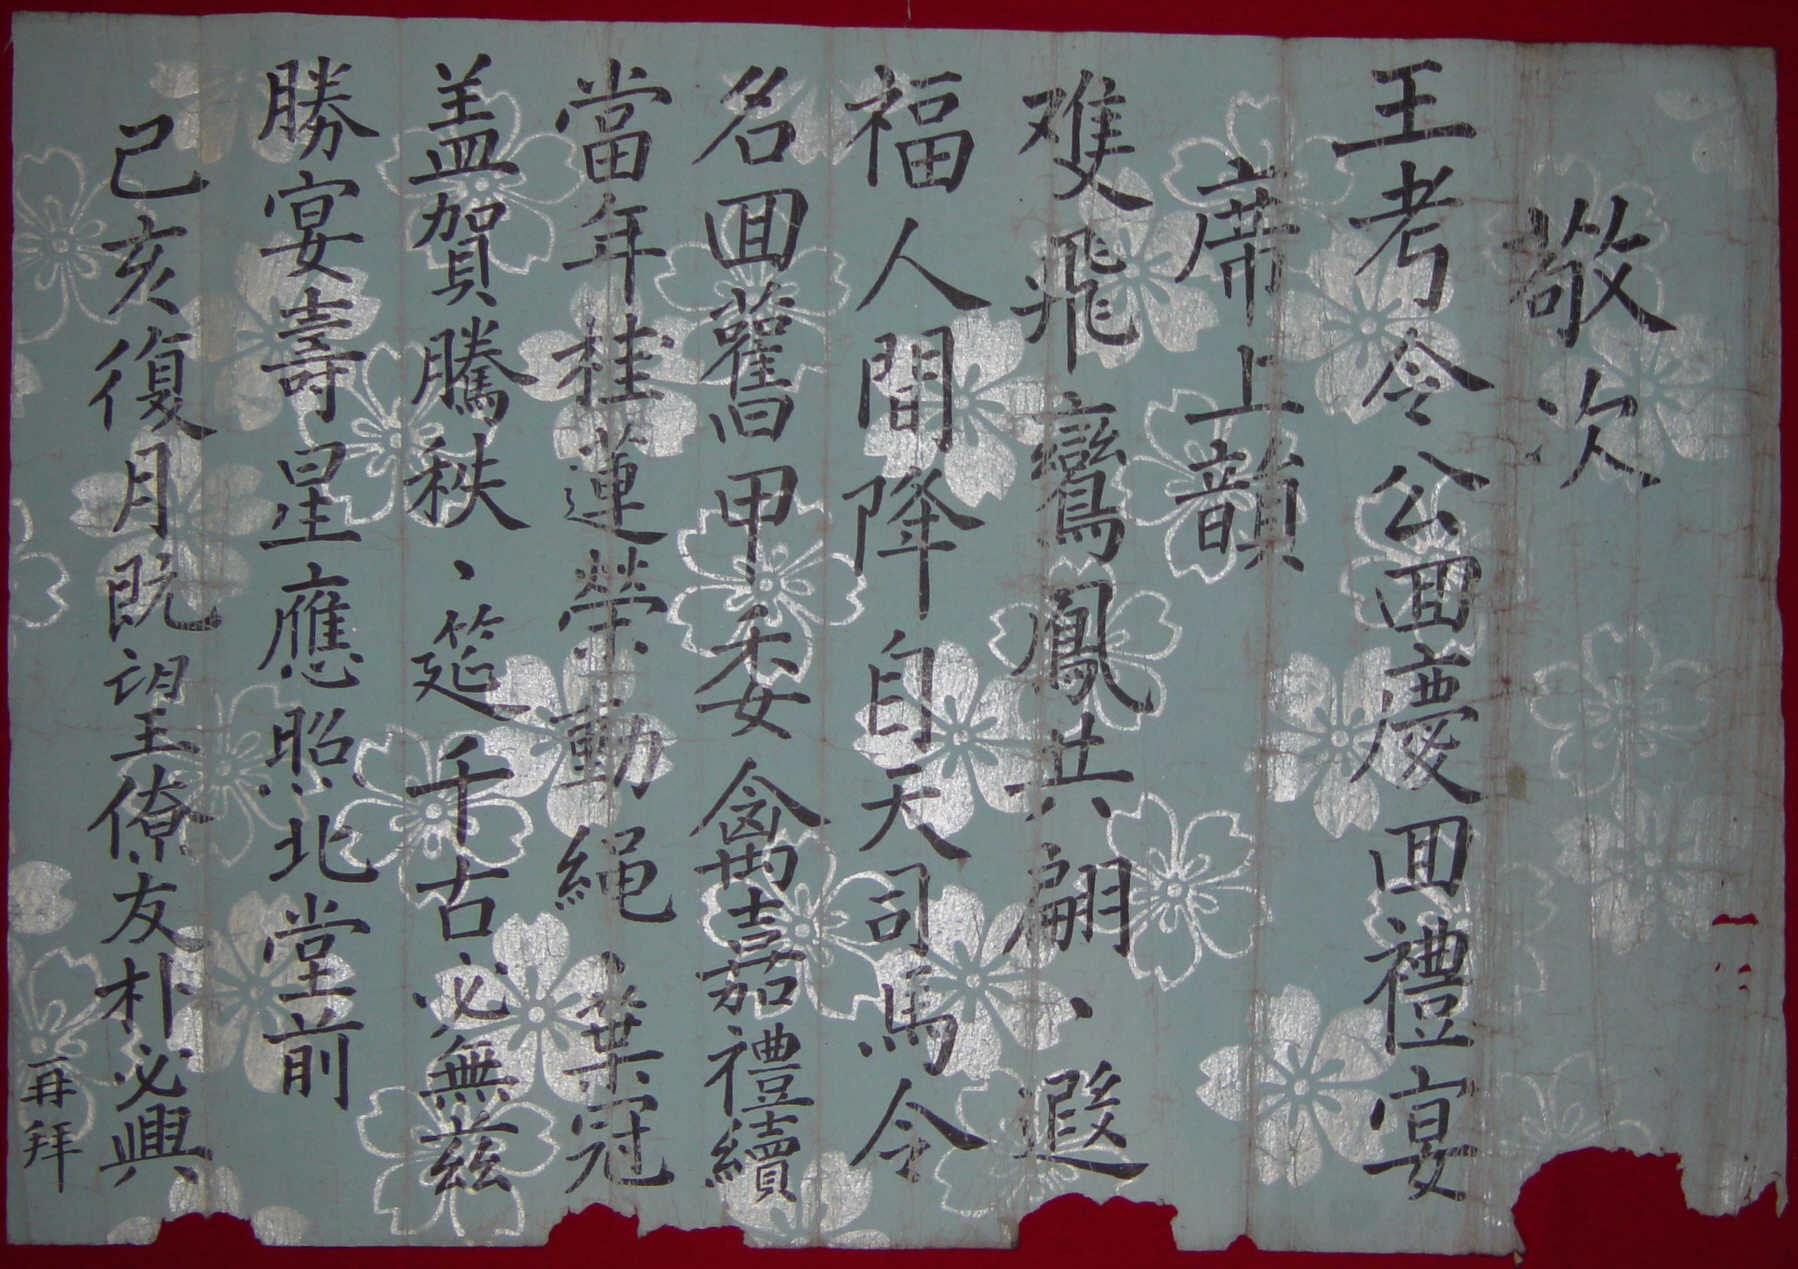 敬次
王考令公囬慶囬禮宴
席上韻
难飛鸞鳳共翩、遐
福人間降自天司馬令
名囬舊甲委禽嘉禮續
當年桂蓮榮動繩葉冠
盖賀騰秩、筵千古必無兹
勝宴壽星應照北堂前
己亥復月既望僚友朴必興
再拜